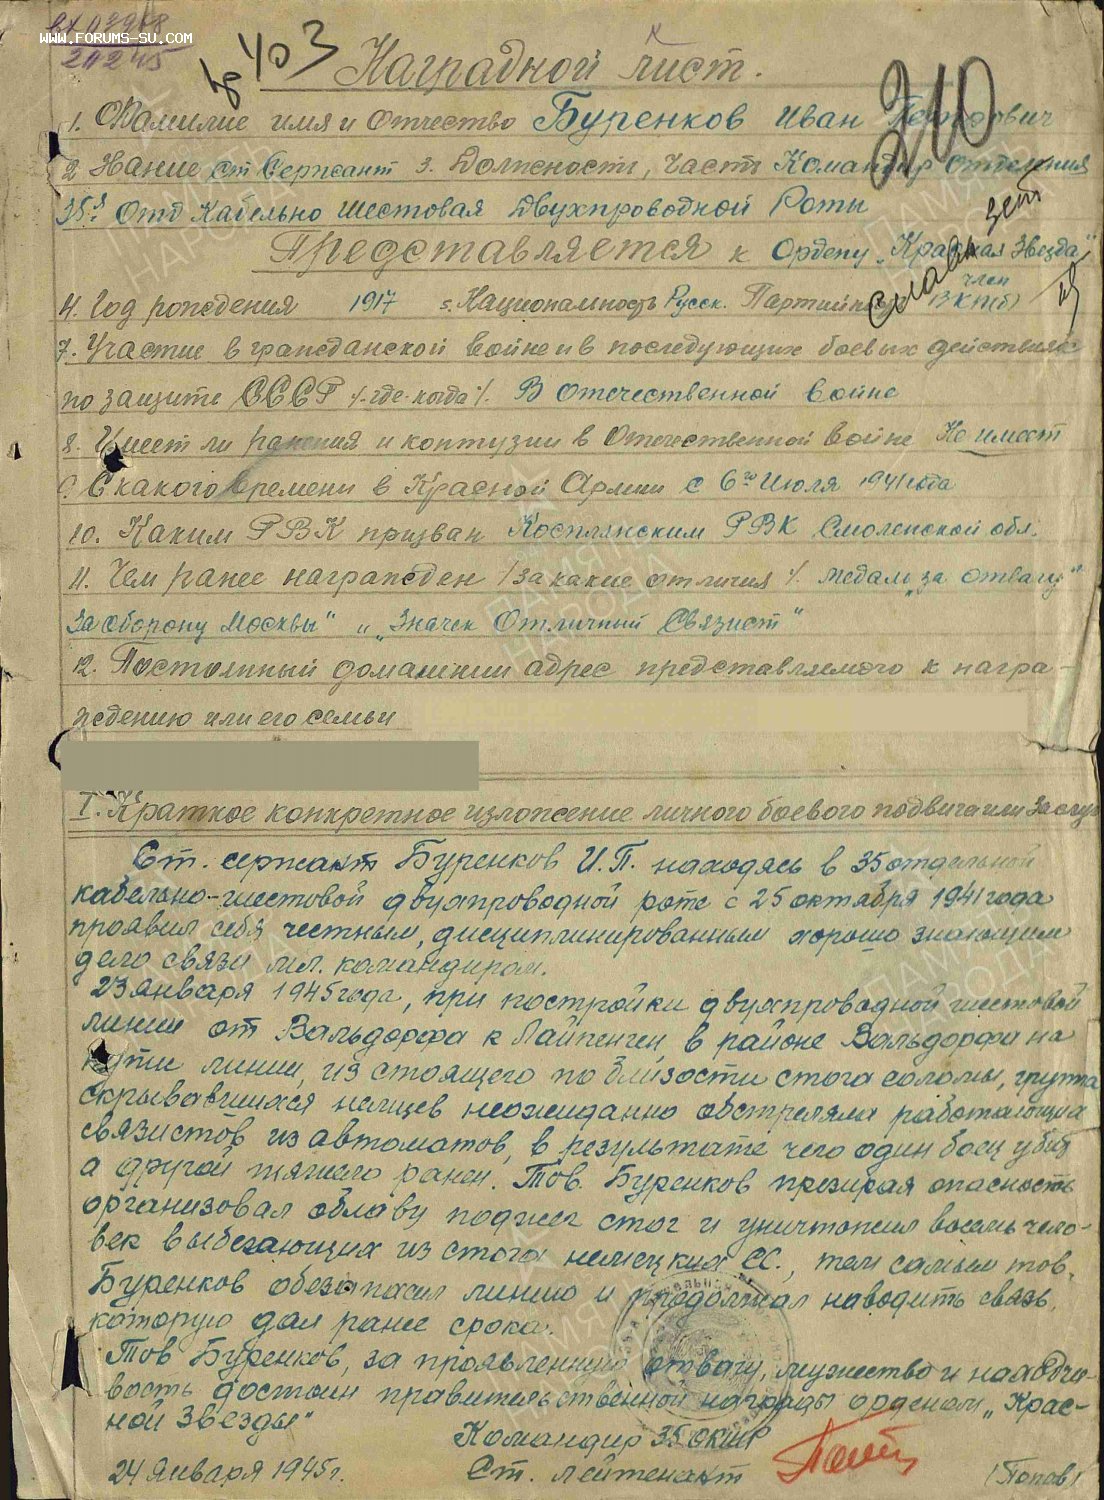 вх 03968
WWW.FORUMS-SU.COM
21 2 45
403
210
Наградной лист.
1. Фамилие имя и Отчество Буренков Иван
2. Звание Ст Сержант 3. Должность, часть Командир отделения
35я Отд Кабельно шестовая Двухпроводной Роты
Представляется к Ордену „Красная Звезда"
Славы 3 ст
4. Год рождения 1917 5. Национальность Русск. Партийность член ВКП(б)
7. Участие в гражданской войне и в последующих боевых действиях
по защите СССР /.где-когда/. В Отечественной войне
8. Имеет ли ранения и контузии в Отечественной войне Не имеет
9. С какого времени в Красной Армии с 6го Июля 1941 года
10. Каким РВК призван Косплянским РВК Смоленской обл.
11. Чем ранее награжден /за какие отличия/. Медаль „за отвагу"
За оборону Москвы" „Значек Отличный Связист"
12. Постоянный домашнии адрес представляемого к награ-
ждению или его семьи
I. Краткое конкретное изложение личного боевого подвига или заслуг
Ст. сержант Буренков И.П. находясь в 35 отдельной
кабельно-шестовой двухпроводной роте с 25 октября 1941 года
проявил себя честным, дисциплинированным хорошо знающим
дело связи мл. командиром.
23 января 1945 года, при постройки двухпроводной шестовой
линии от Вальдорфа к Лайпенген, в районе Вальдорфа на
пути линии, из стоящего по близости стога соломы, группа
скрывавшихся немцев неожиданно обстреляла работающих
связистов из автоматов, в результате чего один боец убит
а другой тяжело ранен. Тов. Буренков презирая опасность
организовал облаву поджег стог и уничтожил восемь чело-
век выбегающих из стога немецких СС., тем самым тов.
Буренков обезапасил линию и продолжал наводить связь,
которую дал ранее срока.
Тов Буренков, за проявленную отвагу, мужество и находчи-
вость достоин правительственной награды орденом „Крас-
ной Звезды"
Командир 35 ОКШР
24 Января 1945 г. Ст. лейтенант (Попов)
ПАМЯТЬ НАРОДА